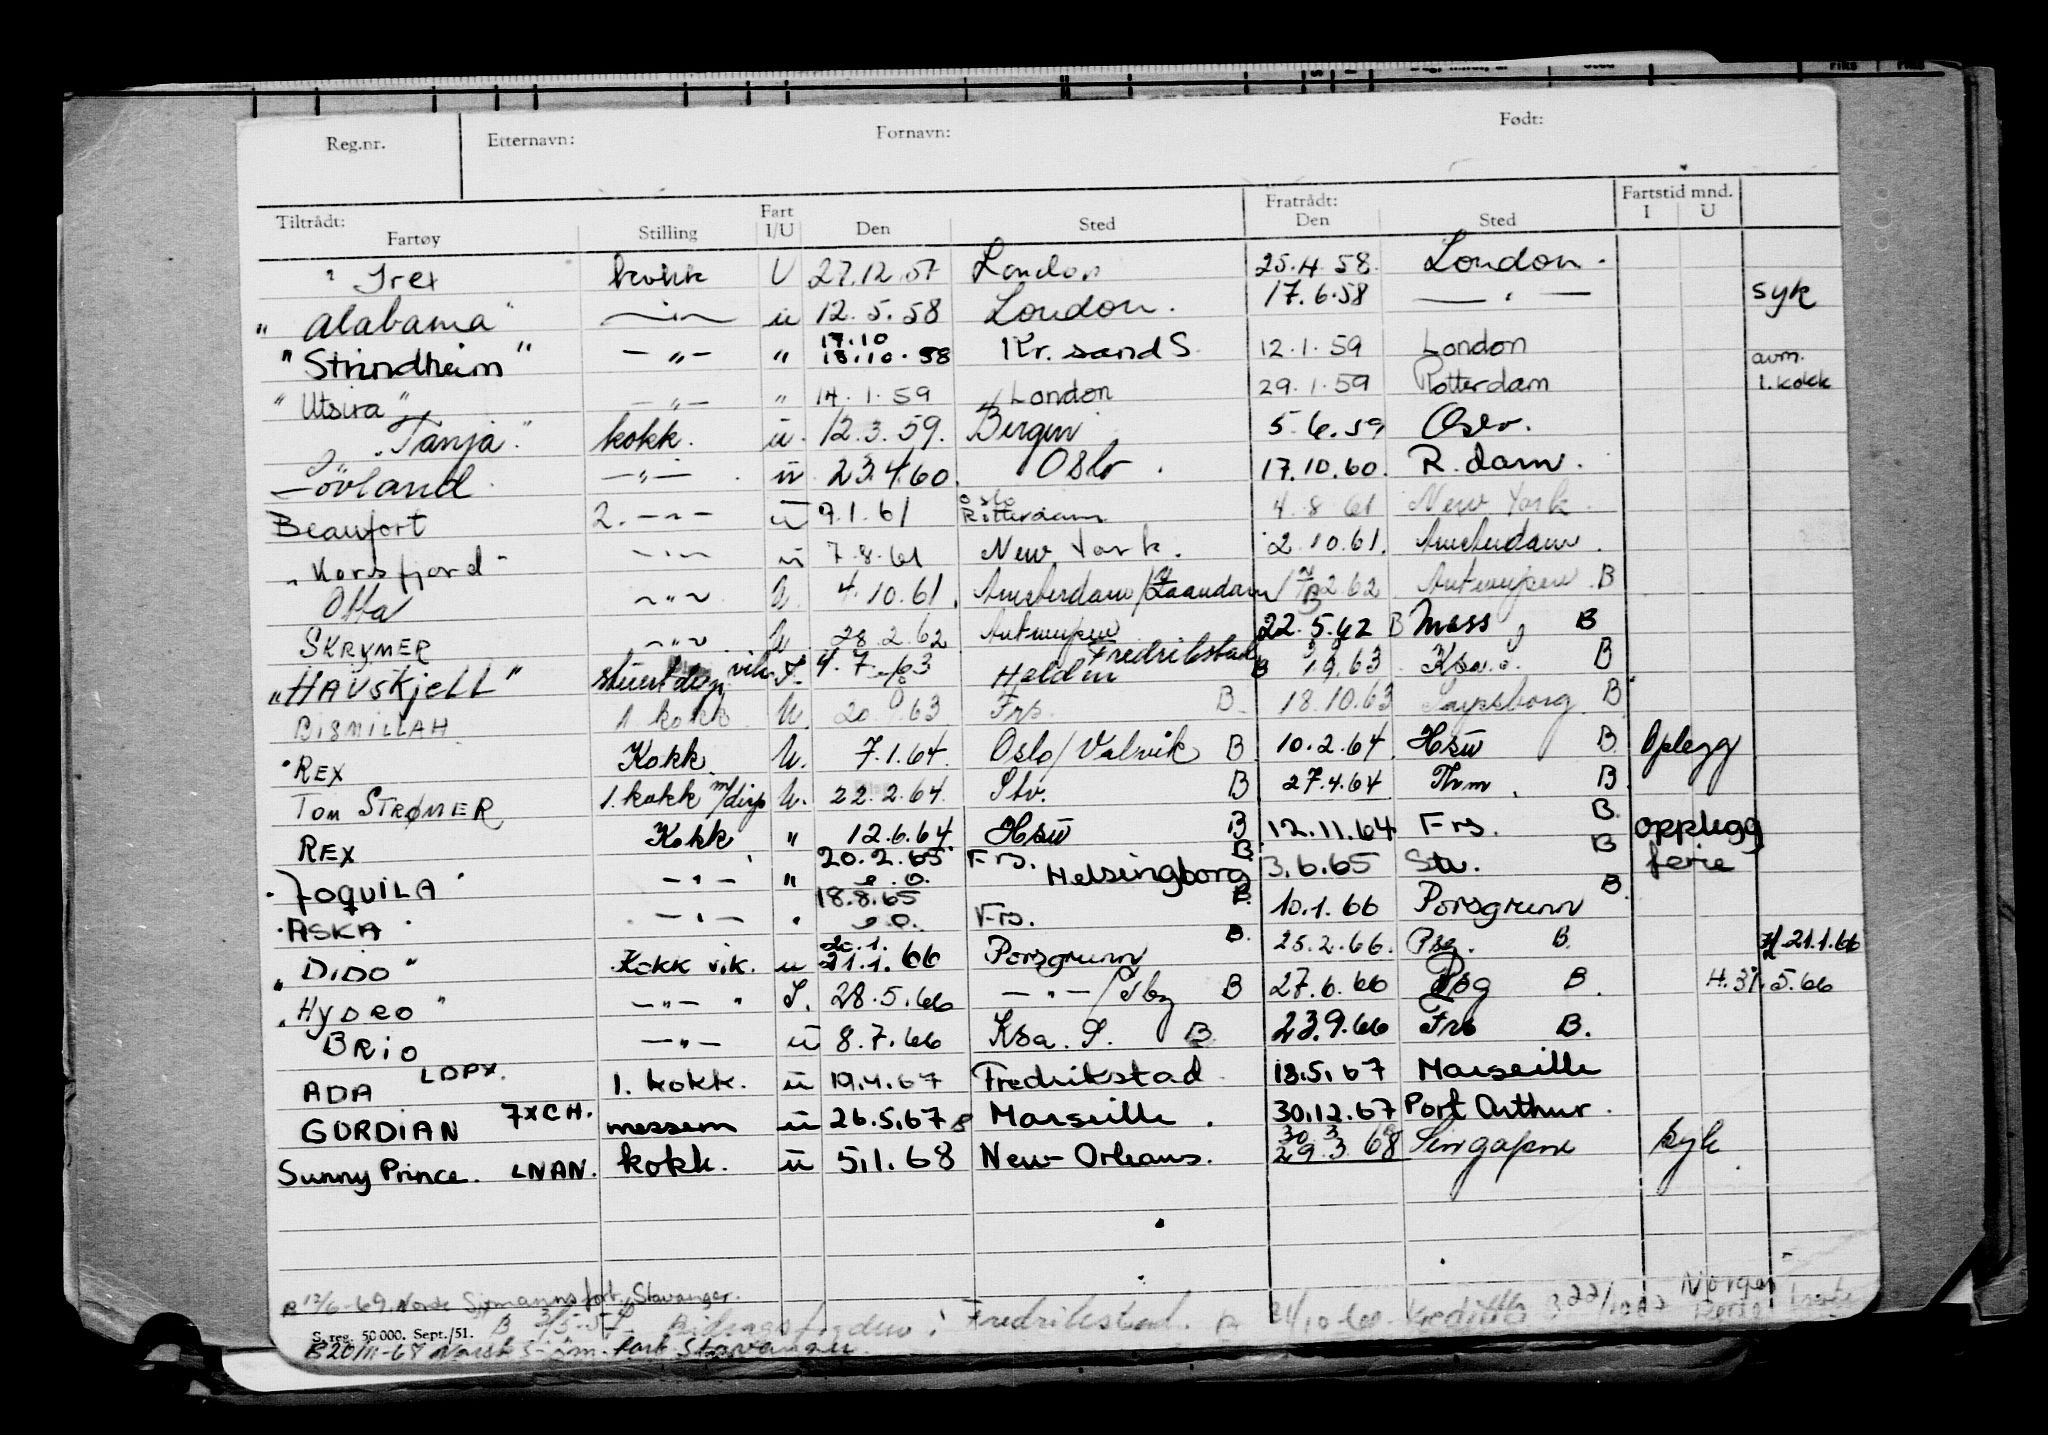 Reg.nr. Etternavn: Fornavn: Født:
Tiltrådt: Fratrådt: Fartstid mnd.
Fartøy Stilling Fart I/U Den Sted Den Sted I U
" Irex kokk U 27.12.57 London 25.4.58. London.
" Alabama " —"— u 12.5.58 London. 17.6.58 —"— syk
17.10
" Strindheim " —"— " 18.10.58 Kr.sand S. 12.1.59 London avm.
" Utsira " —"— " 14.1.59 London 29.1.59 Rotterdam 1. kokk
" Tanja " kokk. u. 12.3.59. Bergen 5.6.59 Oslo.
Lövland —"— u 23.4.60. Oslo. 17.10.60. R.dam.
Oslo
Beaufort 2. —"— u 9.1.61 Rotterdam 4.8.61 New York.
" Korsfjord " —"— u 7.8.61 New York. 2.10.61. Amsterdam.
Otta —"— U. 4.10.61. Amsterdam/Zaandam 2.62 Antwerpen B
SKRYMER —"— U 28.2.62 Antwerpen 22.5.62 B Moss B
Fredrikstad
" HAVSKJELL " stuert vik. I. 4.7.63 Halden B 1963 Ksa. B
BISMILLAH 1. kokk U. 20 63 Frs. B. 18.10.63 Sarpsborg B
" REX Kokk U. 7.1.64. Oslo/Valvik B 10.2.64. B Oplegg
TOM STRØMER 1. kokk m/disp U. 22.2.64. Stv. B 27.4.64 Thm. B
REX Kokk " 12.6.64 B 12.11.64 Frs. B. opplegg
JOQUILA —"— " 20.2.65 Frs. Helsingborg B 3.6.65 Stv. B ferie
e.o.
ASKA —"— " 18.8.65 Frs. B. 10.1.66 Porsgrunn B.
e.o.
20.1.
" DIDO " Kokk vik. u 21.1.66 Porsgrunn B. 25.2.66. Psg. B. H 21.1.66
" HYDRO " —"— " I. 28.5.66 —"— B 27.6.66 Psg B. H. 31.5.66
BRIO —"— u 8.7.66 Ksa. S. B. 23.9.66 Frs B.
ADA LDPX. 1. kokk. u 19.4.67 Fredrikstad 18.5.67 Marseille
GORDIAN 7XCH. messem u 26.5.67 B Marseille. 30.12.67 Port Arthur.
30 3
Sunny Prince. LNAN. kokk. u 5.1.68 New-Orleans. 29.3.68 Singapore syk.
B 12/6-69. Norsk Sjømannsfort, Stavanger.
S. reg. 50 000. Sept./51. B 3/5-57 Fredrikstad. B 21/10-60
B 20/11-68 Norsk Sjøm. fort Stavanger.